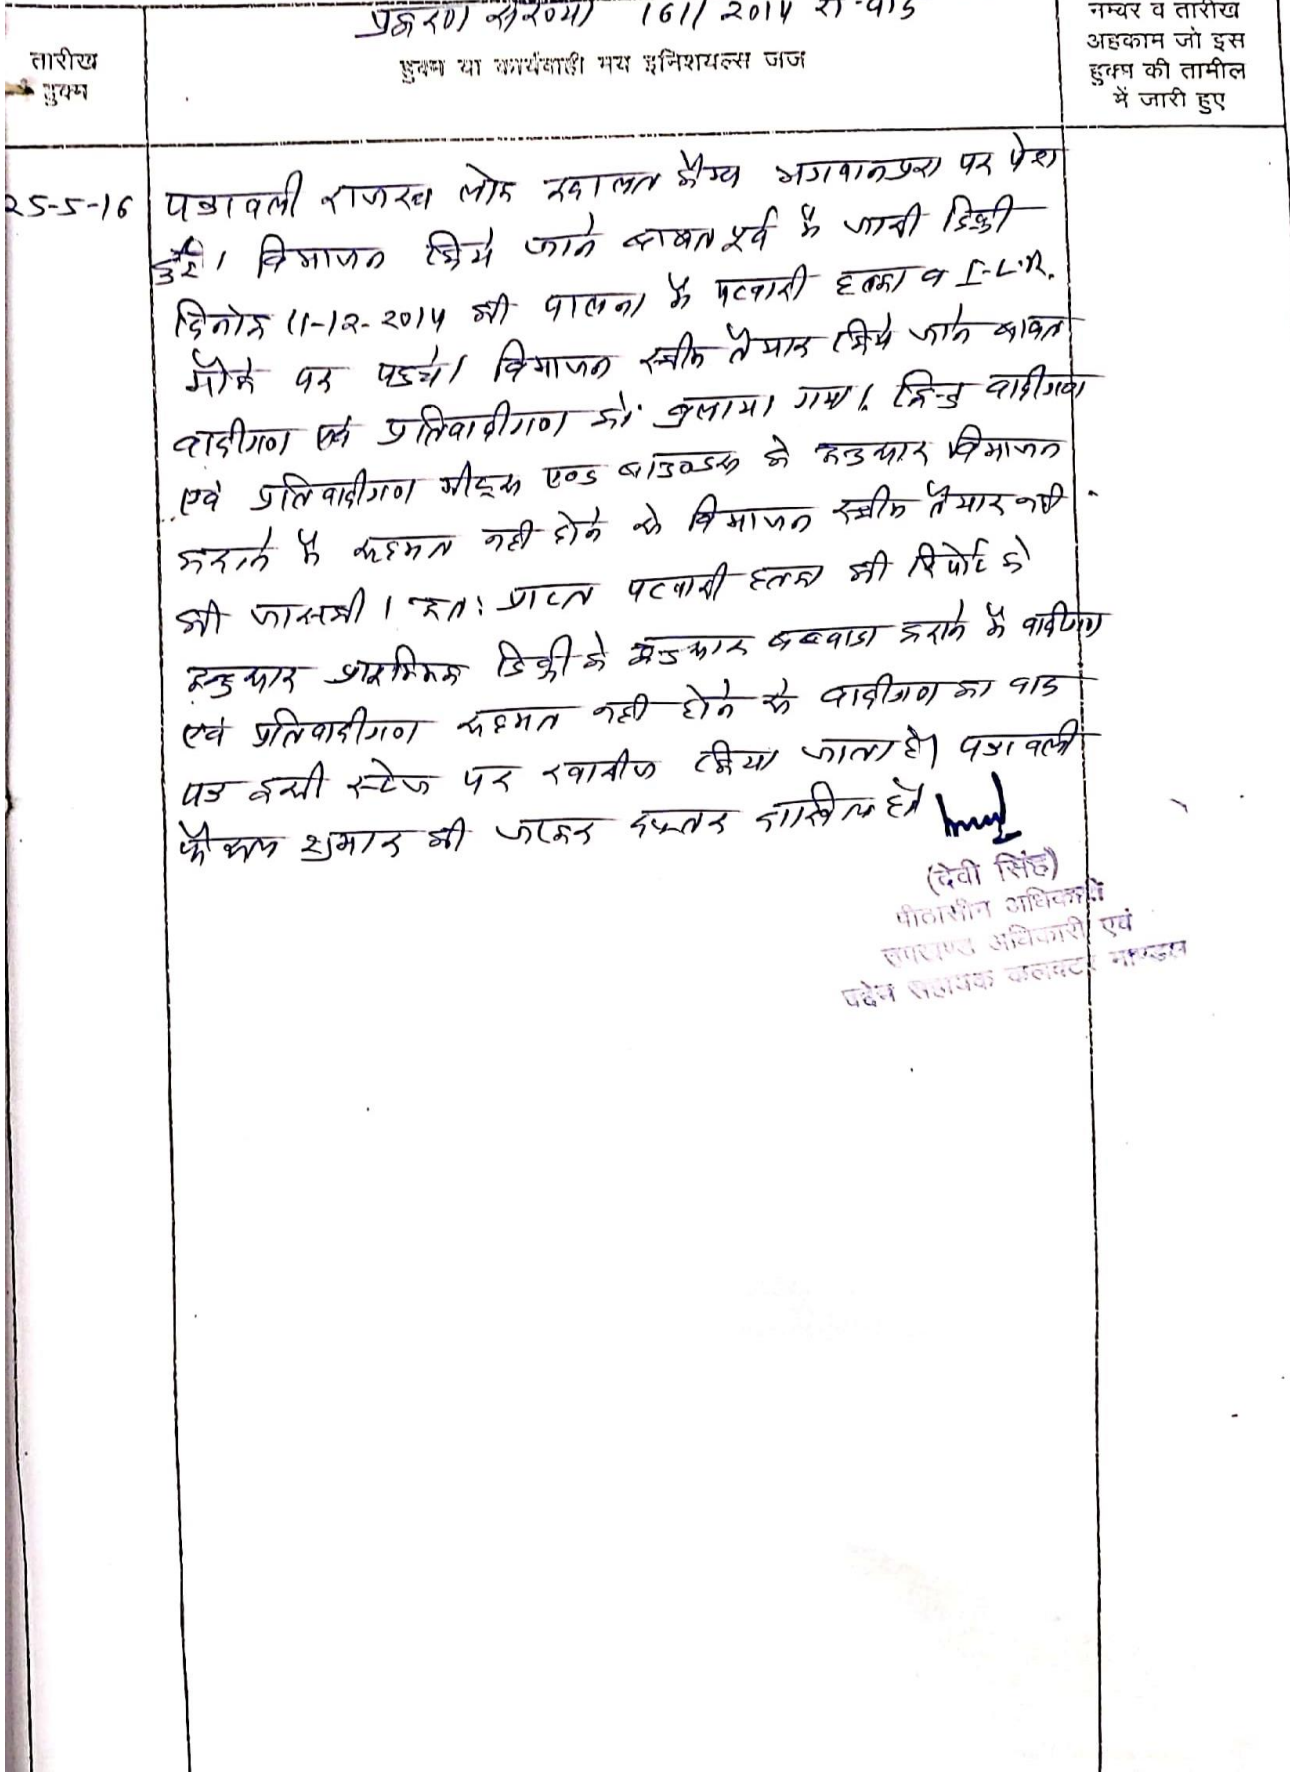 प्रकरण संख्या 161/2014 रा-वाद
तारीख
हुक्म
हुक्म या कार्यवाही मय इनिशयल्स जज
नम्बर व तारीख
अहकाम जो इस
हुक्म की तामील
में जारी हुए
25-5-16
पत्रावली राजस्व लोक अदालत कैम्प भगवानपुरा पर पेश
हुई। विभाजन किये जाने बाबत पूर्व में जारी डिक्री
दिनांक 11-12-2014 की पालना में पटवारी हल्का व I.L.R.
मौके पर पहुंचे। विभाजन स्कीम तैयार किये जाने बाबत
वादीगण एवं प्रतिवादीगण को बुलाया गया। किन्तु वादीगण
एवं प्रतिवादीगण मीट्स एण्ड बाउण्डस के अनुसार विभाजन
कराने में सहमत नही होने से विभाजन स्कीम तैयार नही
की जा सकी। अतः प्राप्त पटवारी हल्का की रिपोर्ट के
अनुसार प्रारम्भिक डिक्री के अनुसार बटवाडा कराने में वादीगण
एवं प्रतिवादीगण सहमत नही होने से वादीगण का वाद
पत्र इसी स्टेज पर खारीज किया जाता है। पत्रावली
फैसल शुमार की जाकर दफ्तर दाखिल हो।
(देवी सिंह)
पीठासीन अधिकारी
उपखण्ड अधिकारी एवं
पदेन सहायक कलक्टर माण्डल